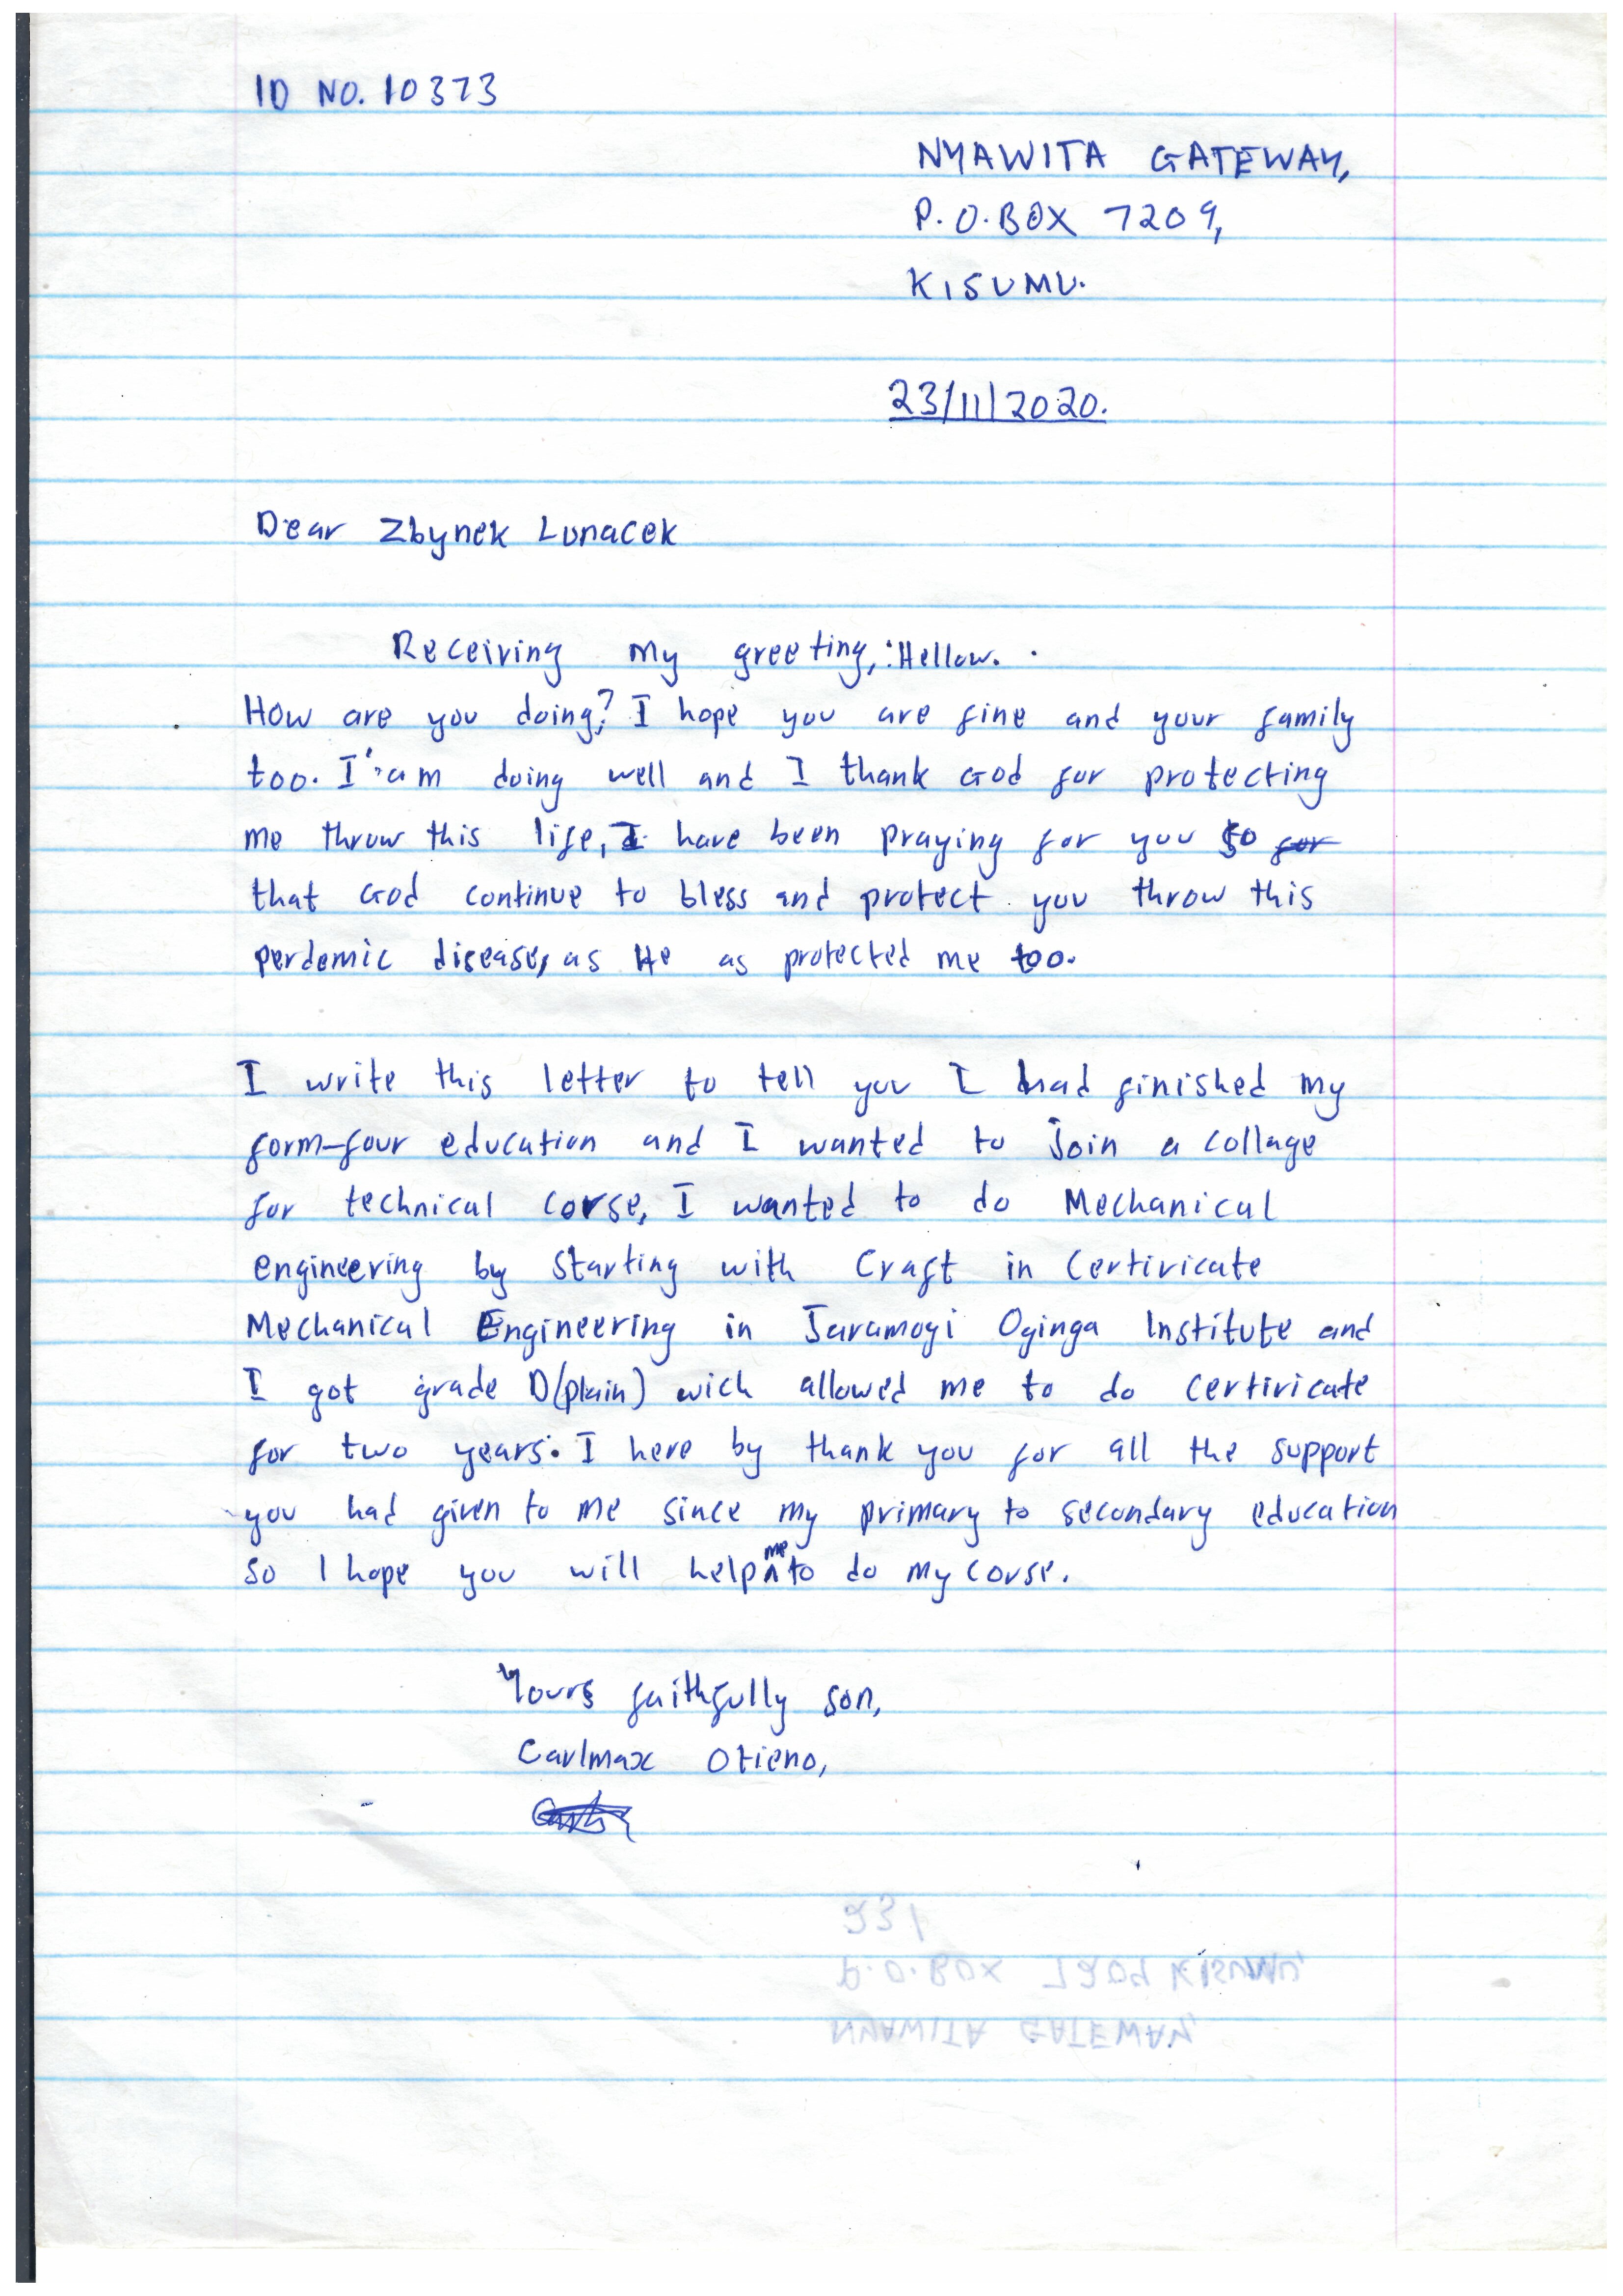 ID NO. 10373
NYAWITA GATEWAY,
P.O.BOX 7209,
KISUMU.
23/11/2020.
Dear Zbynek Lunacek
Receiving my greeting,:Hellow.
How are you doing? I hope you are fine and your family
too. I'am doing well and I thank God for protecting
me throw this life, I have been praying for you so for
that God continue to bless and protect you throw this
perdemic disease, as He as protected me too.
I write this letter to tell you I had finished my
form-four education and I wanted to join a collage
for technical corse, I wanted to do Mechanical
engineering by starting with Craft in Certivicate
Mechanical Engineering in Jaramogi Oginga Institute and
I got grade D(plain) wich allowed me to do certivicate
for two years. I here by thank you for all the support
you had given to me since my primary to secondary education
so I hope you will help me to do my corse.
Yours faithfully son,
Carlmax Otieno,
231
P.O.BOX 7209 KISUMU,
NYAWITA GATEWAY,